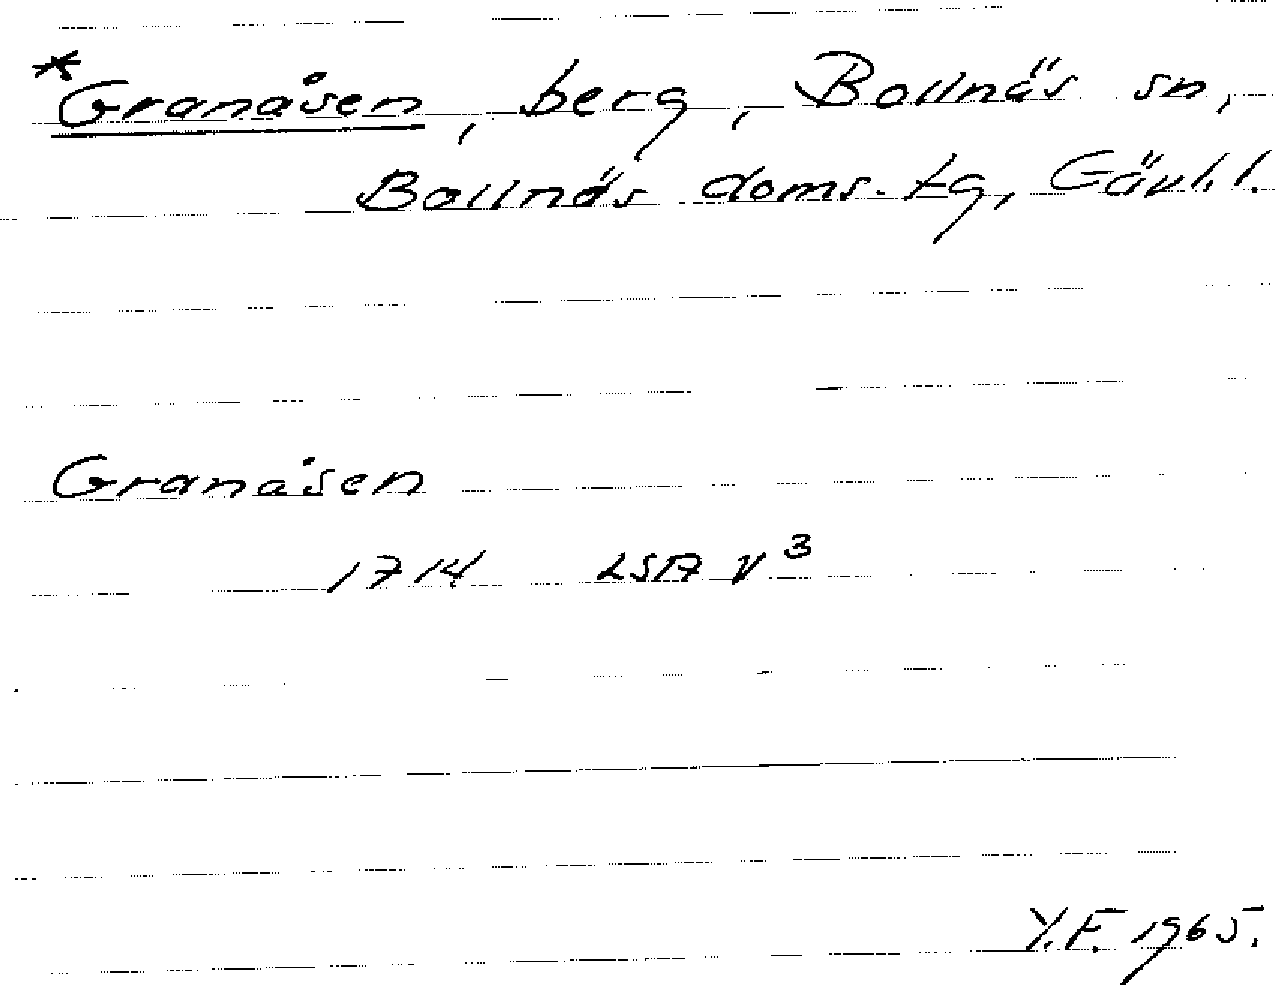 *Granåsen, berg, Bollnäs sn,
Bollnäs doms.tg, Gävl.l.
Granåsen
1714 LSA V³
Y.F. 1965.